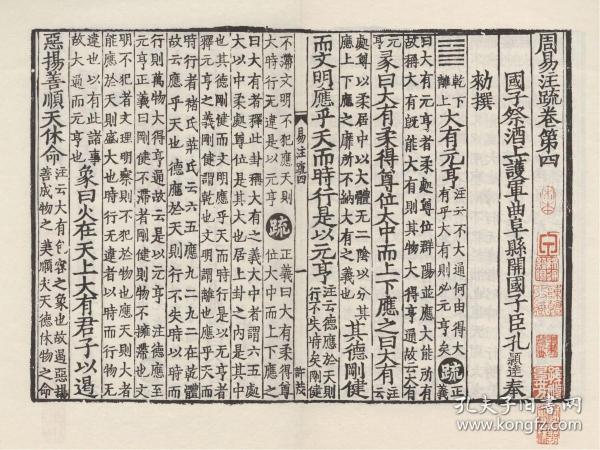 周易注疏卷第四
國子祭酒上護軍曲阜縣開國子臣孔穎達奉
勑撰
䷍乾下離上大有元亨注云不大通何由得大有乎大有則必元亨矣疏正義
曰大有元亨者柔處尊位群陽並應大能所有
故稱大有既能大有則其物大得亨通故云大有元亨
彖曰大有柔得尊位大中而上下應之曰大有注云
處尊以柔居中以大體无二陰以分其
應上下應之靡所不納大有之義也其德剛健
而文明應乎天而時行是以元亨注云德應於天則行不失時矣剛健
不滯文明不犯應天則
大時行无違是以元亨疏正義曰大有柔得尊位大中而上下應之
易注疏四
一
許茂
曰大有者釋此卦稱大有之義大中者謂六五處
大以中柔處尊位是其大也居上卦之內是其中
也其德剛健而文明應乎天而時行是以元亨者
釋元亨之義剛健謂乾也文明謂離也應乎天而
時行者褚氏莊氏云六五應九二九二在乾體
故云應乎天也德應於天則行不失時以時而
行則萬物大得亨通故云是以元亨注德應至
元亨正義曰剛健不滯者剛健則物不擁滯也文
明不犯者文理明察則不犯於物也應天則大者
能應於天則盛大也時行无違者以時而行物无
違也以有此諸事
故大通而元亨也象曰火在天上大有君子以遏
惡揚善順天休命注云大有包容之象也故遏惡揚
善成物之美順夫天德休物之命
孔夫子旧书网
www.kongfz.com